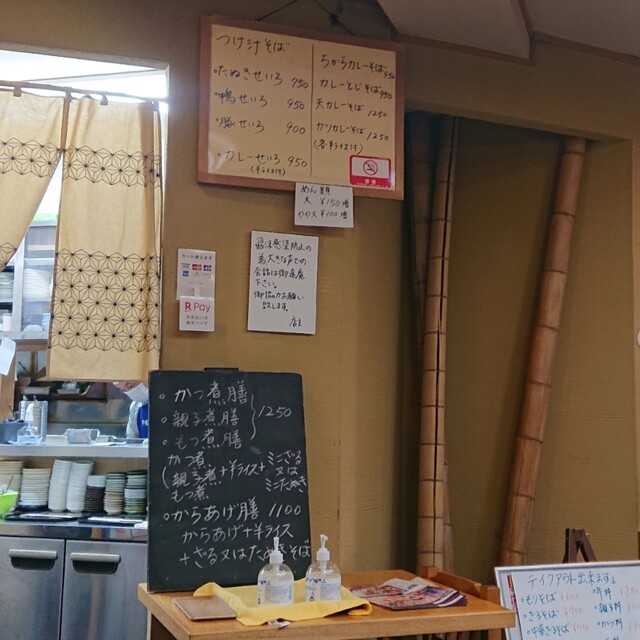 つけ汁そば
・たぬきせいろ 950
・鴨せいろ 950
・豚せいろ 900
・カレーせいろ 950
(半ライス付)
ちからカレーそば 950
カレーとじそば 950
天カレーそば 1250
カツカレーそば 1250
(各半ライス付)
禁煙
めん類
大 ¥150増
やや大 ¥100増
感染防止の
為大きな声での
会話は御遠慮
下さい。
御協力お願い
致します。
店主
カード使えます
R Pay
・かつ煮膳
・親子煮膳
・もつ煮膳
1250
(かつ煮
親子煮+半ライス+ミニざる
又は
もつ煮 ミニたぬき
・からあげ膳 1100
からあげ+半ライス
+ざる又はたぬきそば
テイクアウト出来ます。
・もりそば
・ざるそば
・牛丼
・親子丼
・カツ丼